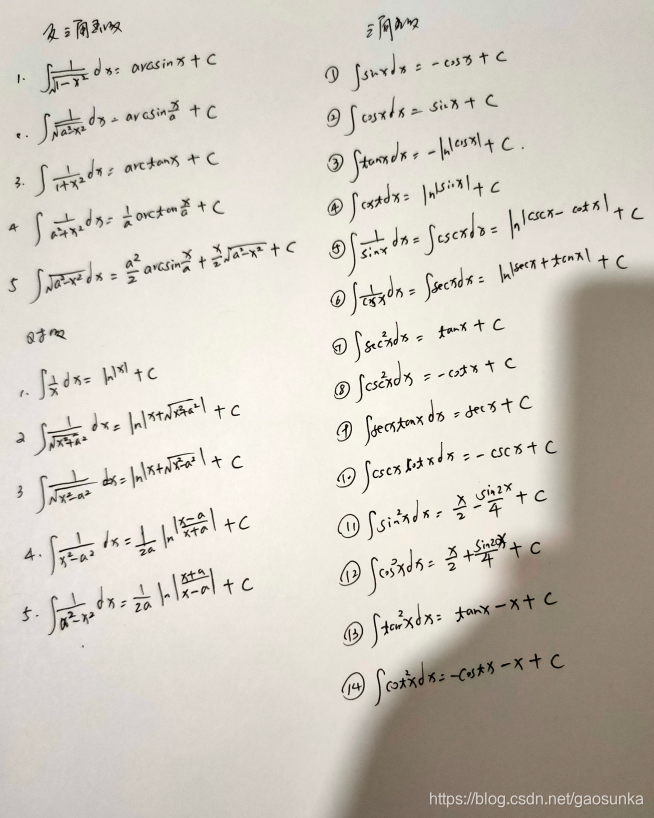 反三角函数
1. ∫ 1/√(1-x²) dx = arcsin x + C
2. ∫ 1/√(a²-x²) dx = arcsin x/a + C
3. ∫ 1/(1+x²) dx = arctanx + C
4 ∫ 1/(a²+x²) dx = 1/a arctan x/a + C
5 ∫ √(a²-x²) dx = a²/2 arcsin x/a + x/2 √(a²-x²) + C
对数
1. ∫ 1/x dx = ln|x| + C
2 ∫ 1/√(x²+a²) dx = ln|x+√(x²+a²)| + C
3 ∫ 1/√(x²-a²) dx = ln|x+√(x²-a²)| + C
4. ∫ 1/(x²-a²) dx = 1/2a ln|(x-a)/(x+a)| + C
5. ∫ 1/(a²-x²) dx = 1/2a ln|(x+a)/(x-a)| + C
三角函数
① ∫ sinx dx = -cosx + C
② ∫ cosx dx = sinx + C
③ ∫ tanx dx = -ln|cosx| + C.
④ ∫ cotx dx = ln|sinx| + C
⑤ ∫ 1/sinx dx = ∫ cscx dx = ln|cscx - cotx| + C
⑥ ∫ 1/cosx dx = ∫ secx dx = ln|secx + tanx| + C
⑦ ∫ sec²x dx = tanx + C
⑧ ∫ csc²x dx = -cotx + C
⑨ ∫ secx tanx dx = secx + C
⑩ ∫ cscx cotx dx = -cscx + C
⑪ ∫ sin²x dx = x/2 - sin2x/4 + C
⑫ ∫ cos²x dx = x/2 + sin2x/4 + C
⑬ ∫ tan²x dx = tanx - x + C
⑭ ∫ cot²x dx = -cotx - x + C
https://blog.csdn.net/gaosunka